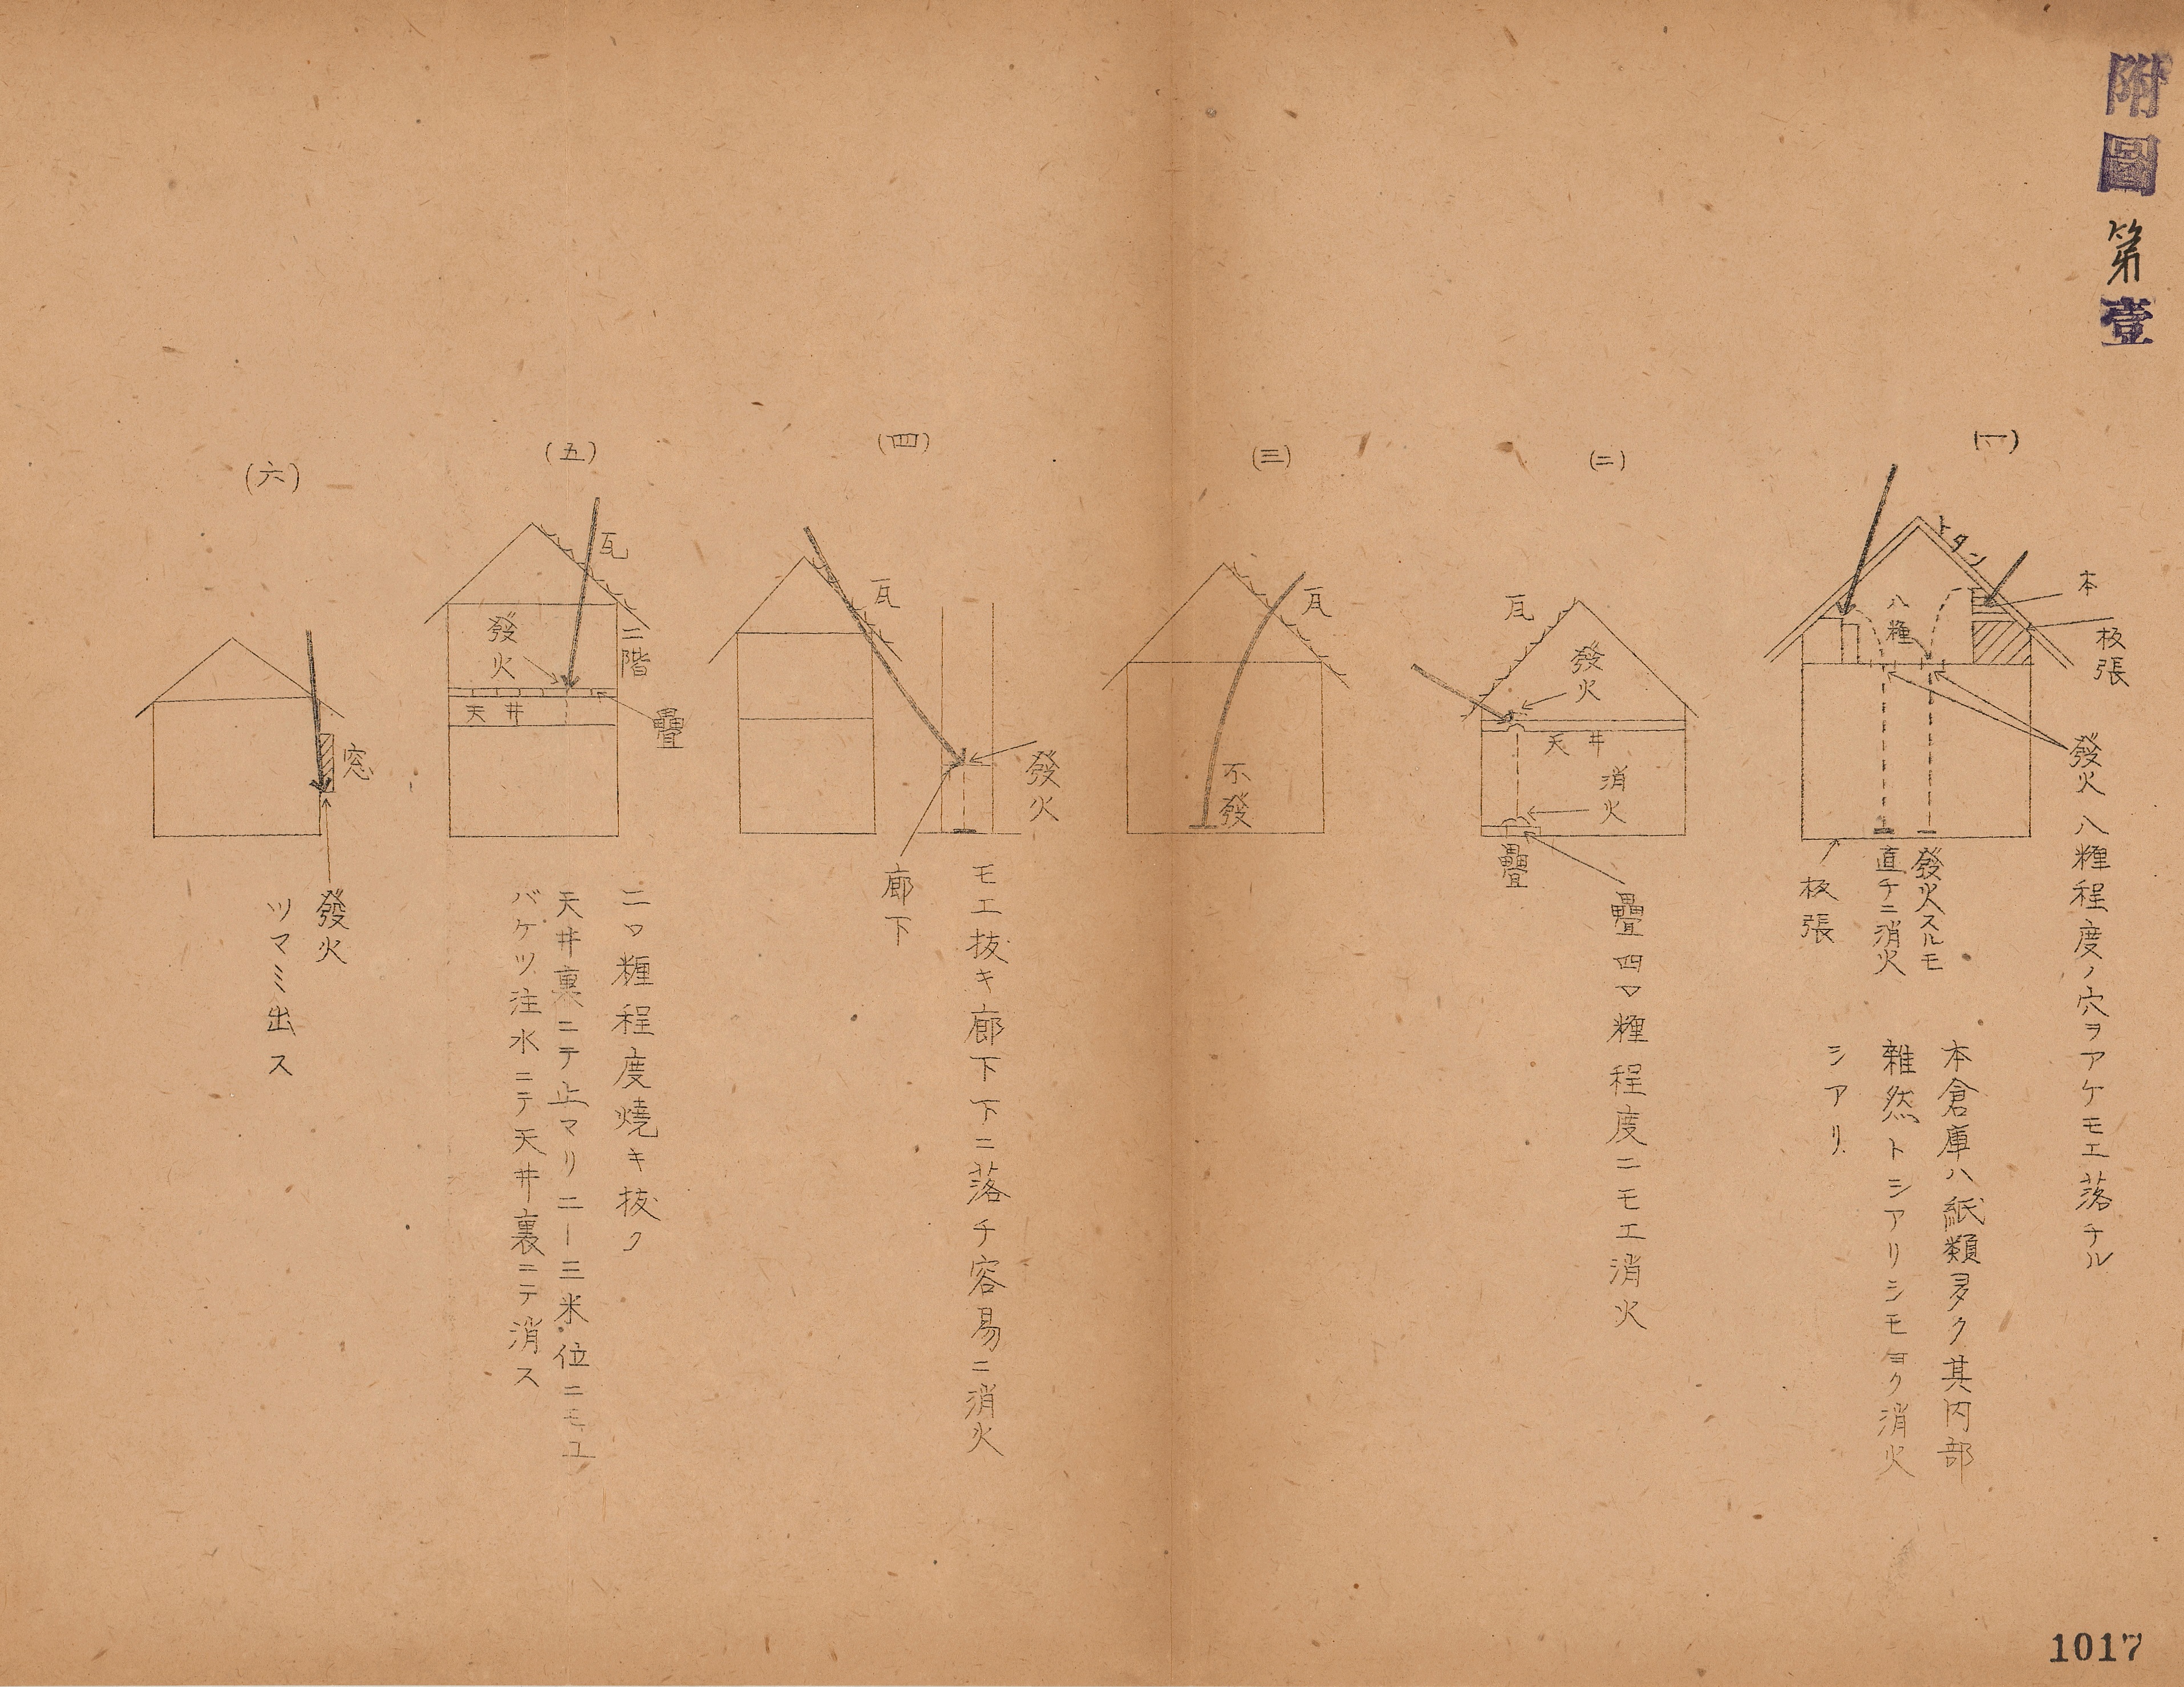 附圖第壹
(一)
トタン
本
板張
八糎
發火
八糎程度ノ穴ヲアケモエ落チル
發火スルモ
直チニ消火
板張
本倉庫ハ紙類多ク其内部
雜然トシアリシモヨク消火
シアリ
(二)
瓦
發火
天井
消火
疊
疊四〇糎程度ニモエ消火
(三)
瓦
不發
(四)
瓦
發火
廊下
モエ抜キ廊下下ニ落チ容易ニ消火
(五)
瓦
二階
發火
天井
疊
二〇糎程度燒キ抜ク
天井裏ニテ止マリ二ー三米位ニモユ
バケツ注水ニテ天井裏ニテ消ス
(六)
窓
發火
ツマミ出ス
1017